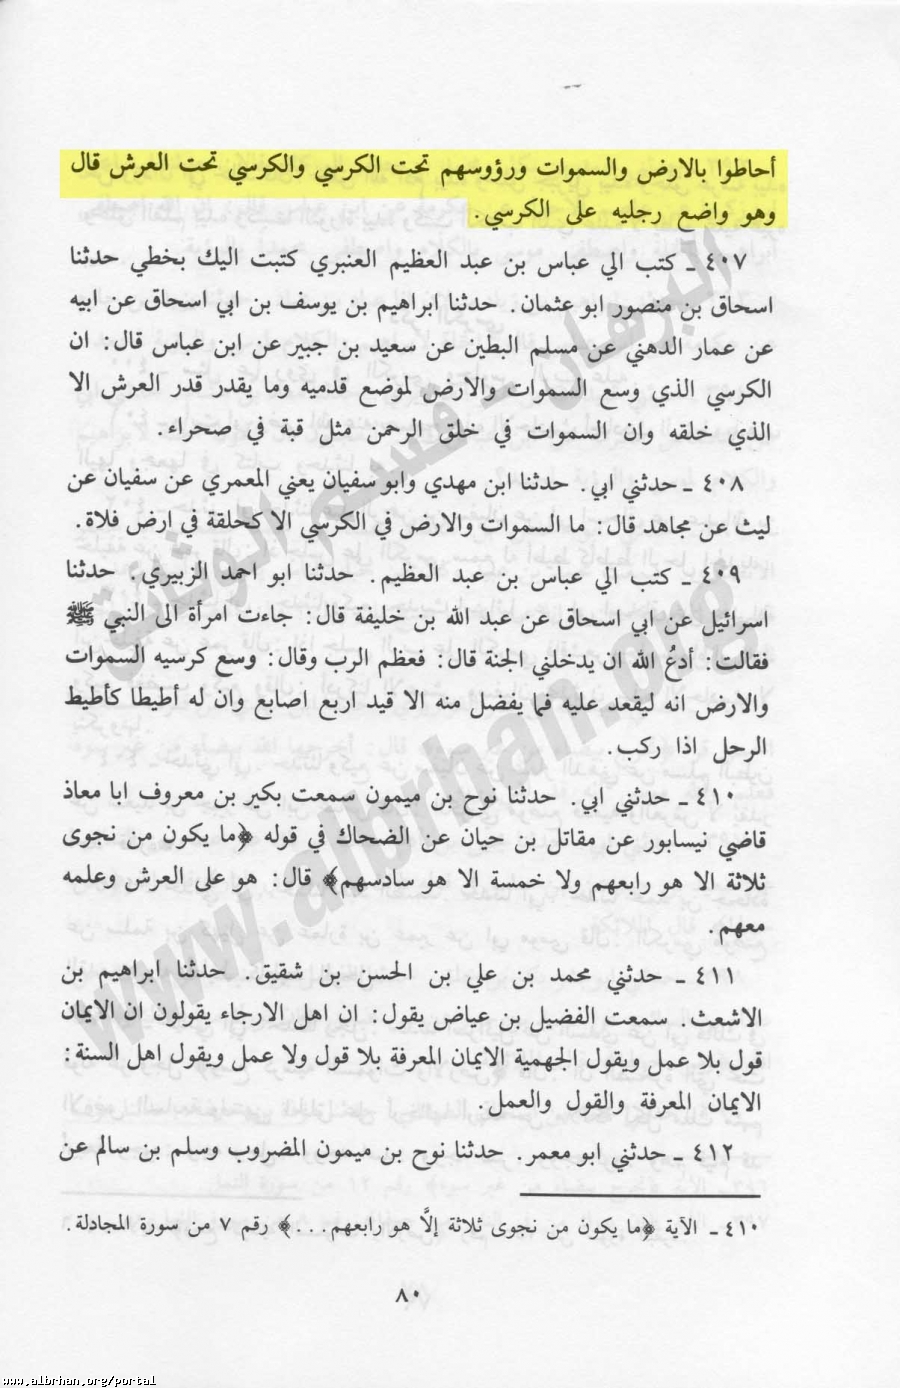 أحاطوا بالارض والسموات ورؤوسهم تحت الكرسي والكرسي تحت العرش قال
وهو واضع رجليه على الكرسي.
٤٠٧ ـ كتب الي عباس بن عبد العظيم العنبري كتبت اليك بخطي حدثنا
اسحاق بن منصور ابو عثمان. حدثنا ابراهيم بن يوسف بن ابي اسحاق عن ابيه
عن عمار الدهني عن مسلم البطين عن سعيد بن جبير عن ابن عباس قال: ان
الكرسي الذي وسع السموات والارض لموضع قدميه وما يقدر قدر العرش الا
الذي خلقه وان السموات في خلق الرحمن مثل قبة في صحراء.
٤٠٨ ـ حدثني ابي. حدثنا ابن مهدي وابو سفيان يعني المعمري عن سفيان عن
ليث عن مجاهد قال: ما السموات والارض في الكرسي الا كحلقة في ارض فلاة.
٤٠٩ ـ كتب الي عباس بن عبد العظيم. حدثنا ابو احمد الزبيري. حدثنا
اسرائيل عن ابي اسحاق عن عبد الله بن خليفة قال: جاءت امرأة الى النبي ﷺ
فقالت: أدعُ الله ان يدخلني الجنة قال: فعظم الرب وقال: وسع كرسيه السموات
والارض انه ليقعد عليه فما يفضل منه الا قيد اربع اصابع وان له أطيطا كأطيط
الرحل اذا ركب.
٤١٠ ـ حدثني ابي. حدثنا نوح بن ميمون سمعت بكير بن معروف ابا معاذ
قاضي نيسابور عن مقاتل بن حيان عن الضحاك في قوله ﴿ما يكون من نجوى
ثلاثة الا هو رابعهم ولا خمسة الا هو سادسهم﴾ قال: هو على العرش وعلمه
معهم.
٤١١ ـ حدثني محمد بن علي بن الحسن بن شقيق. حدثنا ابراهيم بن
الاشعث. سمعت الفضيل بن عياض يقول: ان اهل الارجاء يقولون ان الايمان
قول بلا عمل ويقول الجهمية الايمان المعرفة بلا قول ولا عمل ويقول اهل السنة:
الايمان المعرفة والقول والعمل.
٤١٢ ـ حدثني ابو معمر. حدثنا نوح بن ميمون المضروب وسلم بن سالم عن
٤١٠ ـ الآية ﴿ما يكون من نجوى ثلاثة إلَّا هو رابعهم...﴾ رقم ٧ من سورة المجادلة.
٨٠
البرهان - قسم الوثائق
www.albrhan.org
www.albrhan.org/portal